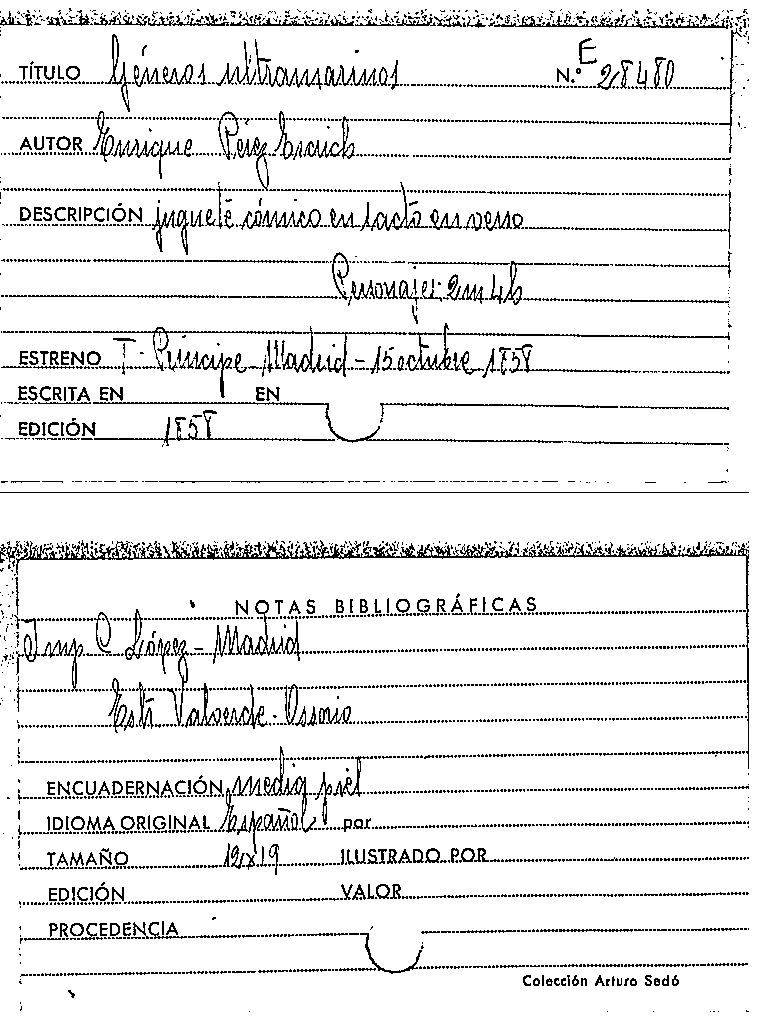 TÍTULO Géneros ultramarinos N.º E 28480
AUTOR Enrique Pérez Escrich
DESCRIPCIÓN juguete cómico en 1 acto en verso
Personajes: 2m 4h
ESTRENO T. Príncipe - Madrid - 15 octubre 1858
ESCRITA EN EN
EDICIÓN 1858
NOTAS BIBLIOGRÁFICAS
Imp C López - Madrid
Valverde - Ossorio
ENCUADERNACIÓN media piel
IDIOMA ORIGINAL Español por
TAMAÑO 12x19 ILUSTRADO POR
EDICIÓN VALOR
PROCEDENCIA
Colección Arturo Sedó